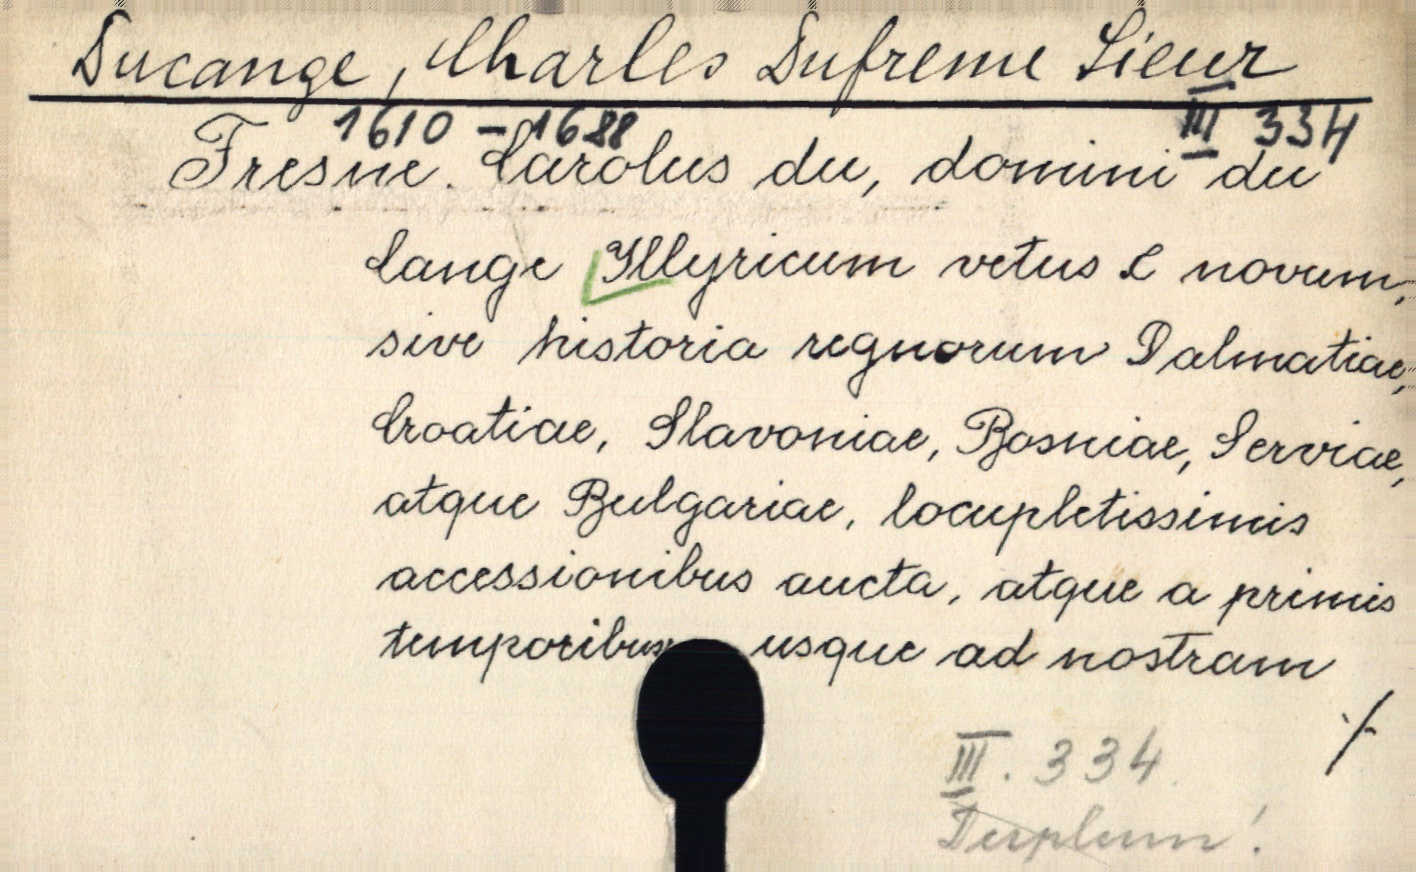 Ducange, Charles Dufresne Sieur
1610 - 1688 III 334
Fresne. Carolus du, domini du
Cange Illyricum vetus & novum,
sive historia regnorum Dalmatiae,
Croatiae, Slavoniae, Bosniae, Serviae,
atque Bulgariae, locupletissimis
accessionibus aucta, atque a primis
temporibus usque ad nostram
./.
III. 334.
Desplum!